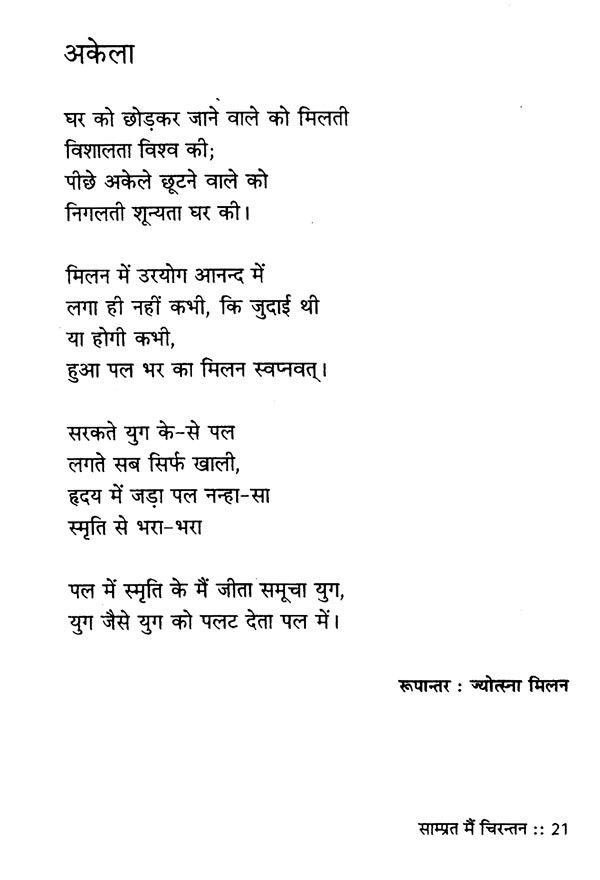 अकेला
घर को छोड़कर जाने वाले को मिलती
विशालता विश्व की;
पीछे अकेले छूटने वाले को
निगलती शून्यता घर की।
मिलन में उरयोग आनन्द में
लगा ही नहीं कभी, कि जुदाई थी
या होगी कभी,
हुआ पल भर का मिलन स्वप्नवत्।
सरकते युग के-से पल
लगते सब सिर्फ खाली,
हृदय में जड़ा पल नन्हा-सा
स्मृति से भरा-भरा
पल में स्मृति के मैं जीता समूचा युग,
युग जैसे युग को पलट देता पल में।
रूपान्तर : ज्योत्स्ना मिलन
साम्प्रत मैं चिरन्तन :: 21